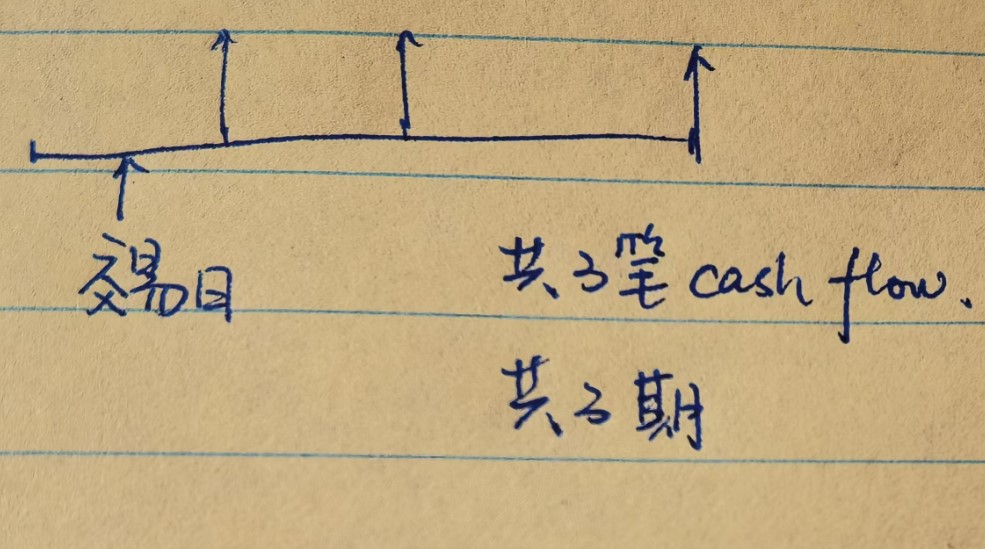 交易日
共3笔 cash flow.
共3期